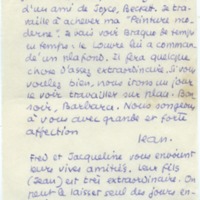 d'un ami de Joyce, Becket. Je tra-
vaille à achever ma "Peinture mo-
derne". Je vais voir Braque de temps
en temps. Le Louvre lui a comman-
dé un plafond. Il fera quelque
chose d'assez extraordinaire. Si vous
voulez bien, nous irons un jour
le voir travailler sur place. Bon-
soir, Barbara. Nous songeons
à vous avec grande et forte
affection
Jean.
Fred et Jacqueline vous envoient
leurs vives amitiés, leur fils
(Jean) est très extraordinaire. On
peut le laisser seul des jours en-